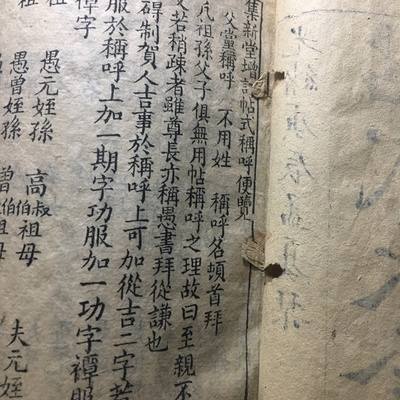 集新堂增訂帖式稱呼便覽
父黨稱呼 不用姓 稱呼名頓首拜
凡祖孫父子俱無用帖稱呼之理故曰至親不
文若稍疎者雖尊長亦稱愚書拜從謙也
礙制賀人吉事於稱呼上可加從吉二字若
服於稱呼上加一期字功服加一功字禫服
禫字
祖 愚元姪孫 高叔伯祖母 夫元姪
祖 愚曾姪孫 曾伯祖母